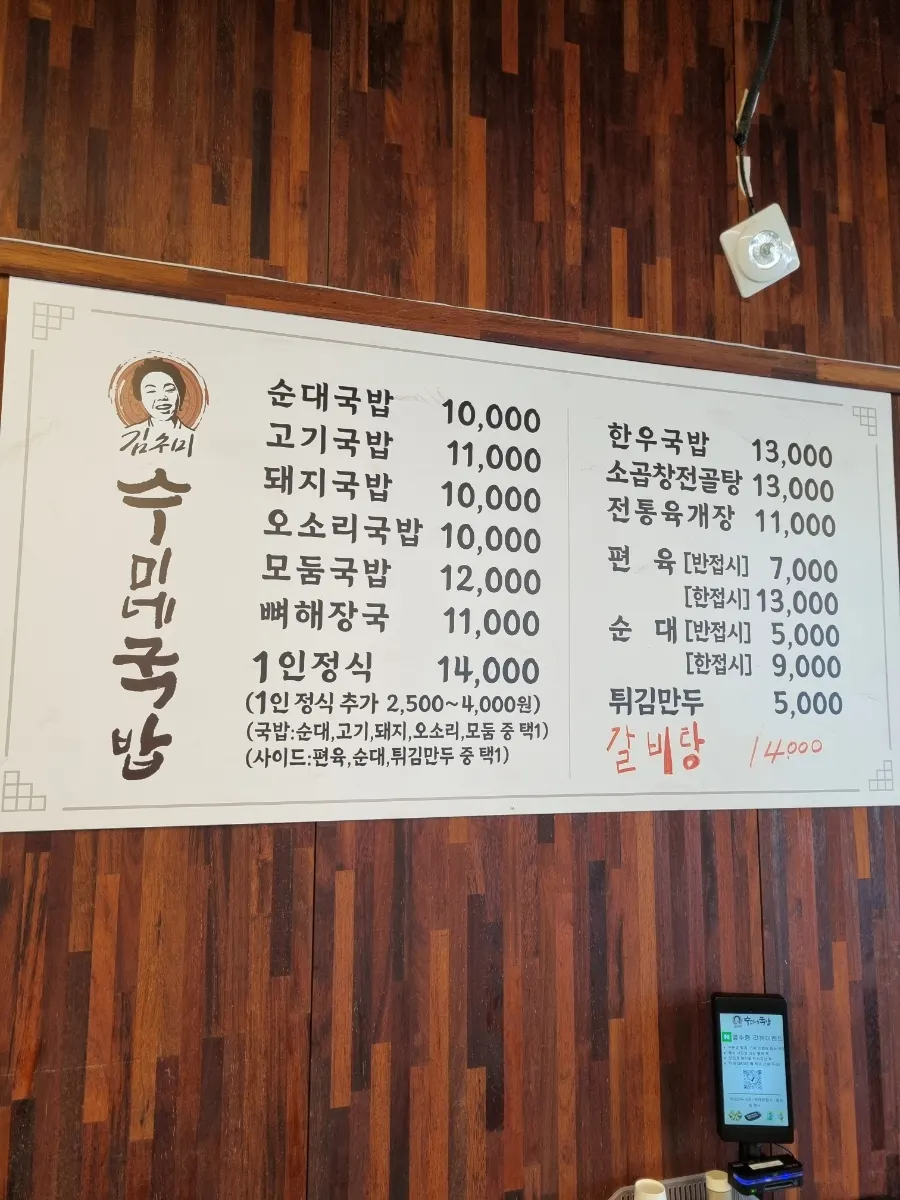 김수미
수미네국밥
순대국밥 10,000
고기국밥 11,000
돼지국밥 10,000
오소리국밥 10,000
모둠국밥 12,000
뼈해장국 11,000
1인정식 14,000
(1인 정식 추가 2,500~4,000원)
(국밥:순대,고기,돼지,오소리,모둠 중 택1)
(사이드:편육,순대,튀김만두 중 택1)
한우국밥 13,000
소곱창전골탕 13,000
전통육개장 11,000
편 육 [반접시] 7,000
[한접시] 13,000
순 대 [반접시] 5,000
[한접시] 9,000
튀김만두 5,000
갈비탕 14.000
수미네국밥
N